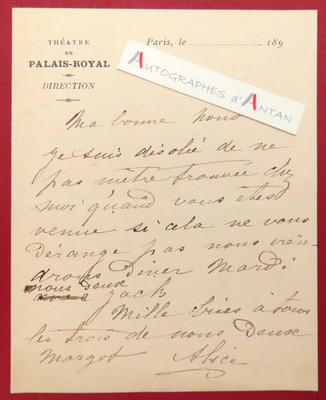 THÉATRE
DU
PALAIS-ROYAL
DIRECTION
Paris, le 189
AUTOGRAPHES d'ANTAN
Ma bonne
je suis désolée de ne
pas mêtre trouvée chez
moi quand vous êtes
venue si cela ne vous
dérange pas nous vien-
drons diner Mardi
nous deux
Jack
Mille bises à tous
les trois de nous deux
Margot Alice